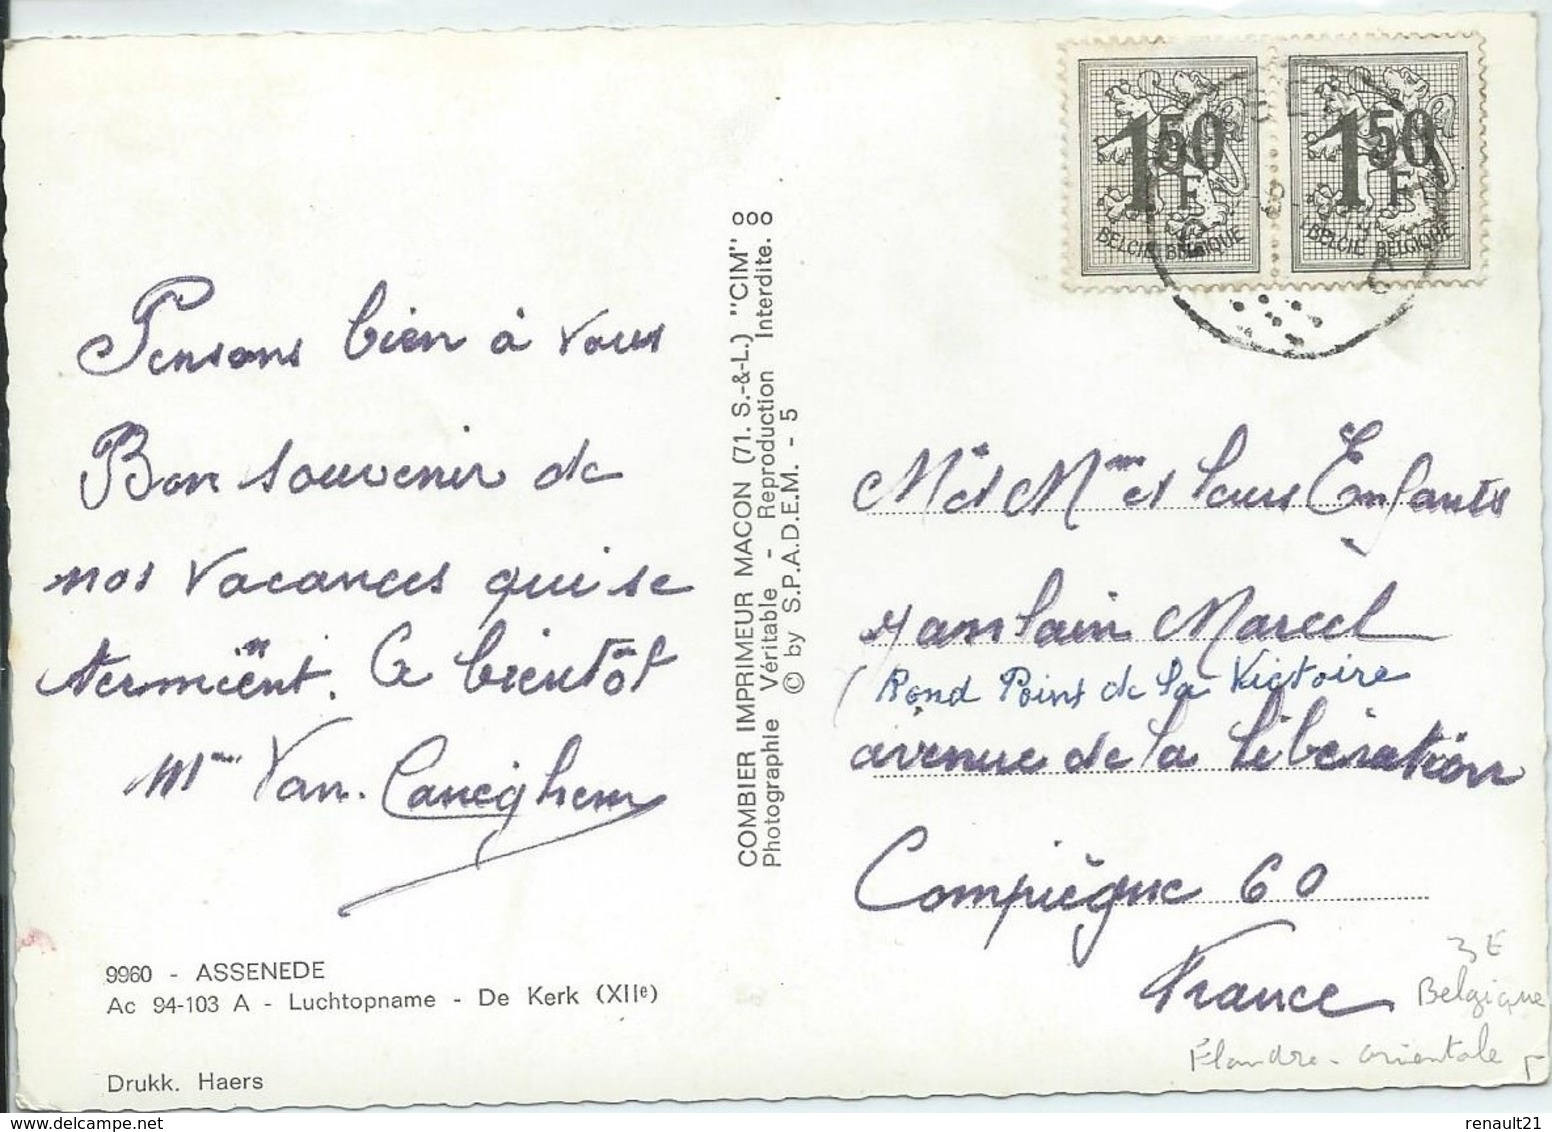 Pensons bien à vous
Bon souvenir de
nos vacances qui se
termiënt. A bientôt
Mme Van. Caneghem
9960 - ASSENEDE
Ac 94-103 A - Luchtopname - De Kerk (XIIe)
Drukk. Haers
COMBIER IMPRIMEUR MACON (71. S.-&-L.) "CIM" ooo
Photographie Véritable - Reproduction Interdite. o
© by S.P.A.D.E.M. - 5
1 50 F
BELGIE BELGIQUE
1 50 F
BELGIE BELGIQUE
Mr et Mme et leurs Enfants
Marcel
(Rond Point de la Victoire
avenue de la libération
Compiègne 60
France
3 E
Belgique
Flandre-orientale
renault21